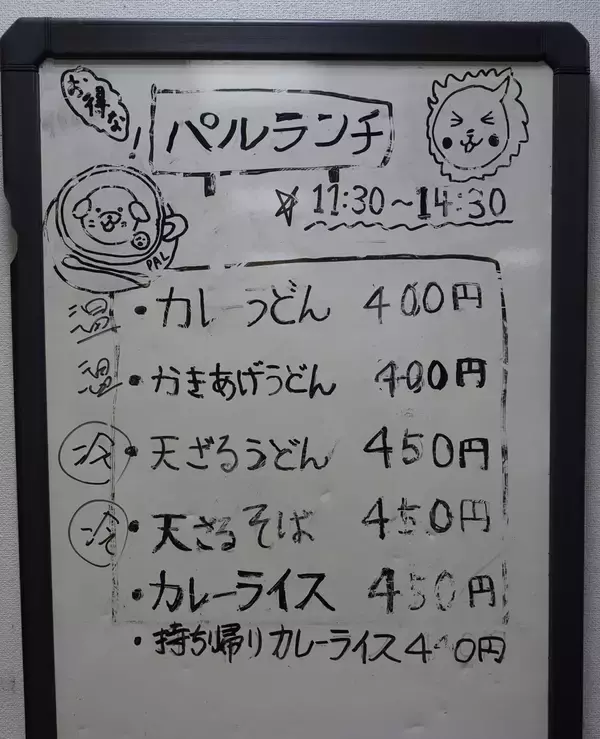 お得な!
パルランチ
☆ 11:30～14:30
PAL
温 ・カレーうどん 400円
温 ・かきあげうどん 400円
冷 ・天ざるうどん 450円
冷 ・天ざるそば 450円
・カレーライス 450円
・持ち帰りカレーライス